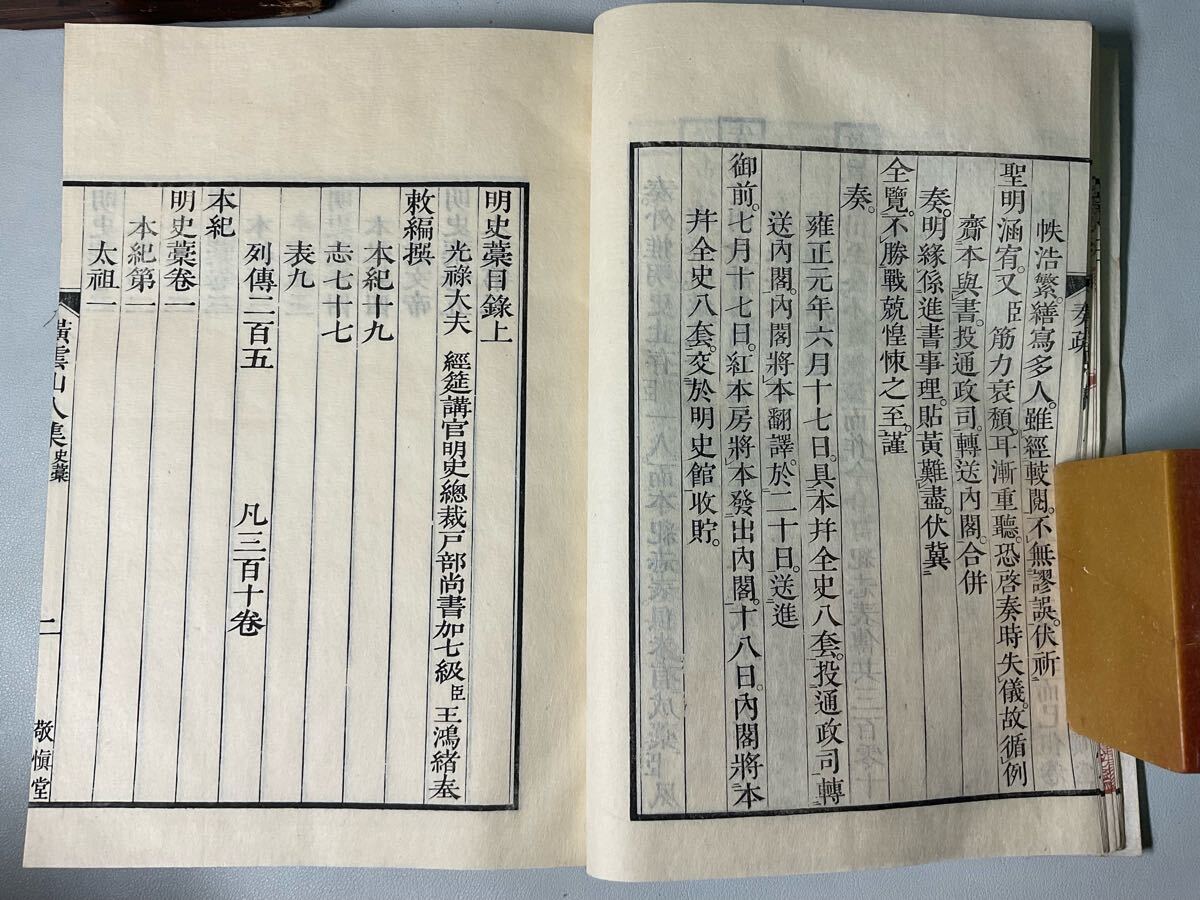 帙浩繁。繕寫多人。雖經較閱。不無謬誤。伏祈
聖明涵宥。又臣筋力衰頹。耳漸重聽。恐啓奏時失儀。故循例
齎本與書。投通政司。轉送內閣。合併
奏。明緣係進書事理。貼黃難盡。伏冀
全覽。不勝戰兢惶悚之至。謹
奏。
雍正元年六月十七日。具本幷全史八套。投通政司轉
送內閣。內閣將本翻譯。於二十日。送進
御前。七月十七日。紅本房將本發出內閣。十八日。內閣將本
幷全史八套。交於明史館收貯。
奏疏
明史藁目錄上
光祿大夫 經筵講官明史總裁戸部尚書加七級臣王鴻緒奉
敕編撰
本紀十九
志七十七
表九
列傳二百五 凡三百十卷
本紀
明史藁卷一
本紀第一
太祖一
橫雲山人集 史藁 二 敬愼堂